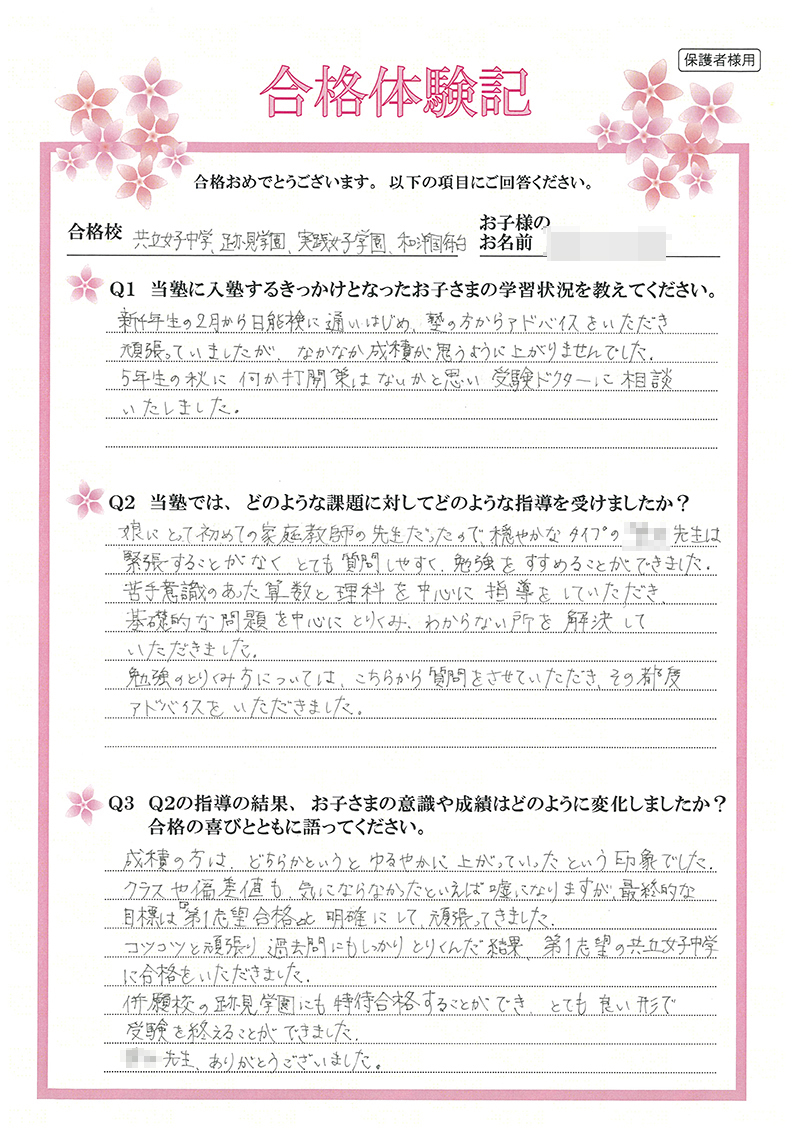 保護者様用
合格体験記
合格おめでとうございます。以下の項目にご回答ください。
合格校 共立女子中学、跡見学園、実践女子学園、和洋国府台
お子様の
お名前
Q1 当塾に入塾するきっかけとなったお子さまの学習状況を教えてください。
新4年生の2月から日能検に通いはじめ、塾の方からアドバイスをいただき
頑張っていましたが、なかなか成積が思うように上がりませんでした。
5年生の秋に何か打開策はないかと思い 受験ドクターに相談
いたしました。
Q2 当塾では、どのような課題に対してどのような指導を受けましたか？
娘にとって初めての家庭教師の先生だったので、穏やかなタイプの 先生は
緊張することがなく とても質問しやすく、勉強をすすめることができました。
苦手意識のあった算数と理科を中心に指導をしていただき
基礎的な問題を中心にとりくみ、わからない所を解決して
いただきました。
勉強のとりくみ方については、こちらから質問をさせていただき、その都度
アドバイスをいただきました。
Q3 Q2の指導の結果、お子さまの意識や成績はどのように変化しましたか？
合格の喜びとともに語ってください。
成積の方は、どちらかというと ゆるやかに上がっていったという印象でした。
クラスや偏差値も、気にならなかったといえば嘘になりますが、最終的な
目標は「第1志望合格」と明確にして、頑張ってきました。
コツコツと頑張り、過去問にもしっかりとりくんだ結果、第1志望の共立女子中学
に合格をいただきました。
併願校の跡見学園にも特待合格することができ、とても良い形で
受験を終えることができました。
先生、ありがとうございました。